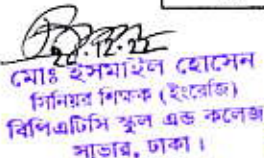 ২৮.১২.২২
মোঃ ইসমাইল হোসেন
সিনিয়র শিক্ষক (ইংরেজি)
বিপিএটিসি স্কুল এন্ড কলেজ
সাভার, ঢাকা।